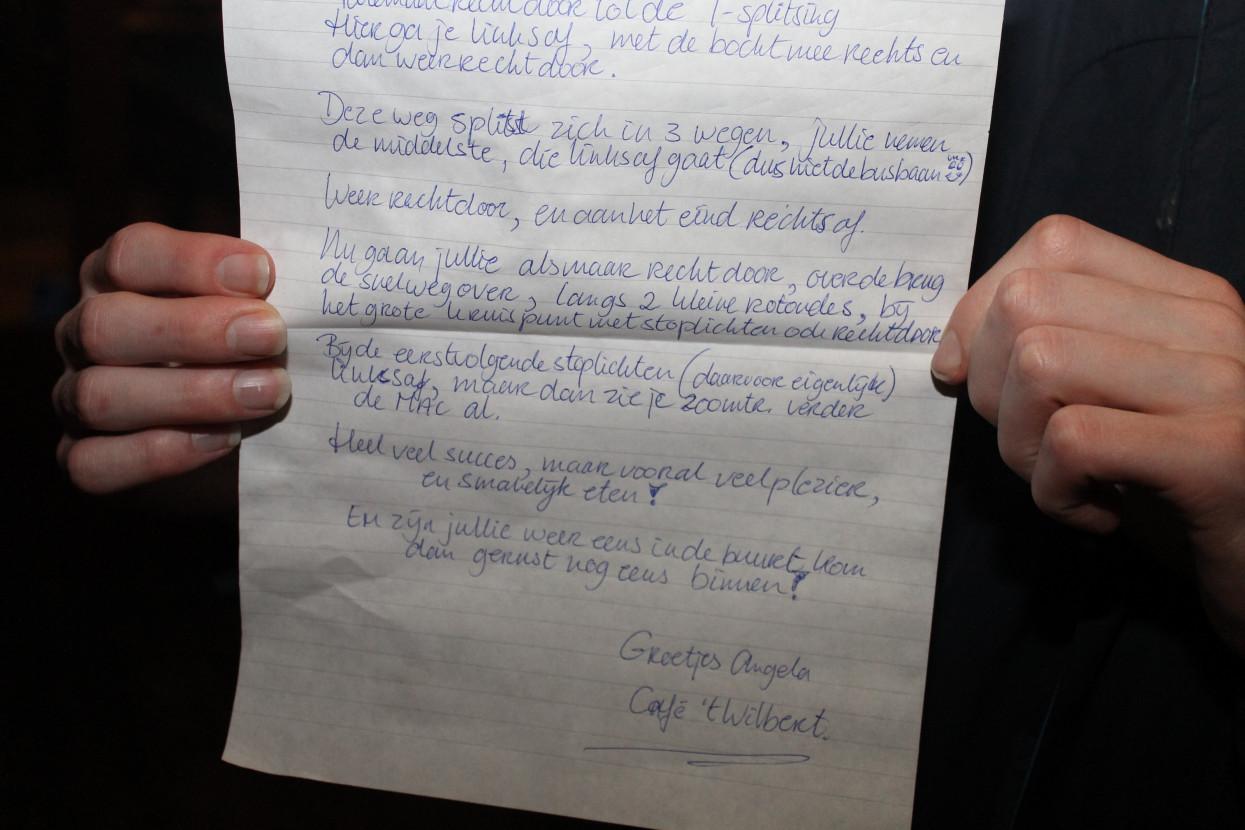 helemaal rechtdoor tot de T-splitsing
Hier ga je linksaf, met de bocht mee rechts en
dan weer rechtdoor.
Deze weg splitst zich in 3 wegen, jullie nemen
de middelste, die linksaf gaat (dus niet de busbaan)
Weer rechtdoor, en aan het eind rechtsaf.
Nu gaan jullie alsmaar rechtdoor, over de brug
de snelweg over, langs 2 kleine rotondes, bij
het grote kruispunt met stoplichten ook rechtdoor
Bij de eerstvolgende stoplichten (daarvoor eigenlijk)
linksaf, maar dan zie je 200mtr. verder
de MAC al.
Heel veel succes, maar vooral veel plezier,
en smakelijk eten!
En zijn jullie weer eens in de buurt, kom
dan gerust nog eens binnen!
Groetjes Angela
Café 't Wilbert.